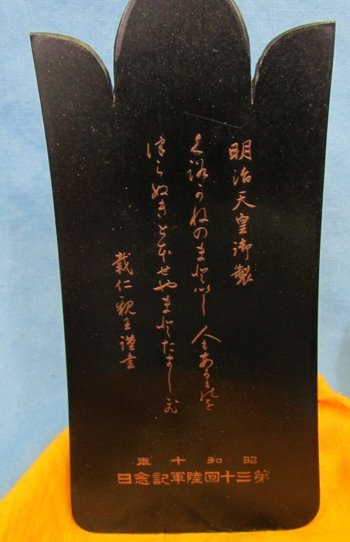 明治天皇御製
くろかねのまとゐし人もあるものを
つらぬきとほせやまとたましひ
載仁親王謹書
昭和十年
第三十回陸軍記念日